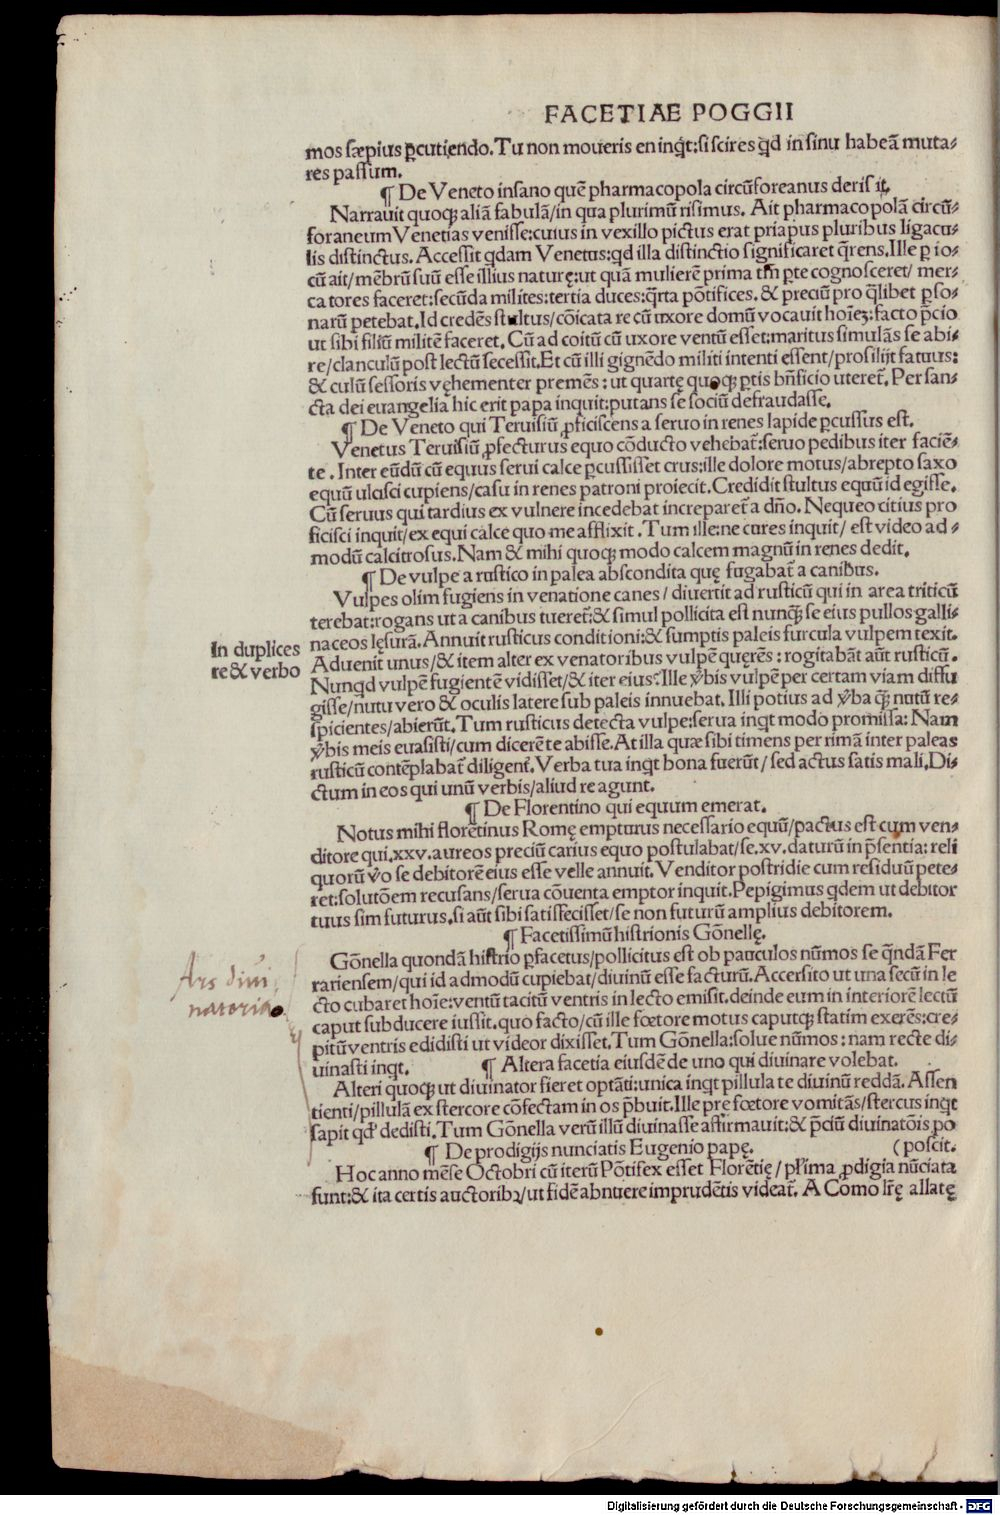 FACETIAE POGGII
mos sæpius ꝑcutiendo. Tu non moueris en inqͭ: si scires qd in sinu habeã muta-
res passum.
¶ De Veneto insano quẽ pharmacopola circũforeanus derisit.
Narrauit quoqꝫ aliã fabulã/in qua plurimũ risimus. Ait pharmacopolã circũ-
foraneum Venetias venisse: cuius in vexillo pictus erat priapus pluribus ligacu-
lis distinctus. Accessit qdam Venetus: qd illa distinctio significaret q̃rens. Ille ꝑ io-
cũ ait/mẽbrũ suũ esse illius naturę: ut quã mulierẽ prima tm̃ ꝑte cognosceret/ mer-
catores faceret: secũda milites: tertia duces: q̃rta põtifices. & preciũ pro q̃libet ꝑso-
narũ petebat. Id credẽs stultus/cõicata re cũ uxore domũ vocauit hoĩeꝫ: facto p̃cio
ut sibi filiũ militẽ faceret. Cũ ad coitũ cũ uxore ventũ esset: maritus simulãs se abi-
re/clanculũ post lectũ secessit. Et cũ illi gignẽdo militi intenti essent/prosilijt fatuus:
& culũ sessoris vęhementer premẽs: ut quartę quoqꝫ ꝑtis bñficio uteret̃. Per san-
cta dei euangelia hic erit papa inquit: putans se sociũ defraudasse.
¶ De Veneto qui Teruisiũ ꝓficiscens a seruo in renes lapide ꝑcussus est.
Venetus Teruisiũ ꝓfecturus equo cõducto vehebat̃: seruo pedibus iter faciẽ-
te. Inter eũdũ cũ equus serui calce ꝑcussisset crus: ille dolore motus/abrepto saxo
equũ ulcisci cupiens/casu in renes patroni proiecit. Credidit stultus equũ id egisse.
Cũ seruus qui tardius ex vulnere incedebat increparet̃ a dño. Nequeo citius pro
ficisci inquit/ex equi calce quo me afflixit. Tum ille: ne cures inquit/ est video ad-
modũ calcitrosus. Nam & mihi quoqꝫ modo calcem magnũ in renes dedit.
¶ De vulpe a rustico in palea abscondita quę fugabat̃ a canibus.
Vulpes olim fugiens in venatione canes/ diuertit ad rusticũ qui in area triticũ
terebat: rogans ut a canibus tueret̃: & simul pollicita est nunqꝫ se eius pullos galli-
In duplices
re & verbo
naceos lęsurã. Annuit rusticus conditioni: & sumptis paleis furcula vulpem texit.
Aduenit unus/& item alter ex venatoribus vulpẽ quęrẽs: rogitabãt aũt rusticũ.
Nunqd vulpẽ fugientẽ vidisset/& iter eius? Ille v̾bis vulpẽ per certam viam diffu
gisse/nutu vero & oculis latere sub paleis innuebat. Illi potius ad v̾ba qꝫ nutũ re-
spicientes/abierũt. Tum rusticus detecta vulpe: serua inqt modo promissa: Nam
v̾bis meis euasisti/cum dicerẽ te abisse. At illa quæ sibi timens per rimã inter paleas
rusticũ contẽplabat̃ diligent̃. Verba tua inqt bona fuerũt/ sed actus satis mali. Di-
ctum in eos qui unũ verbis/aliud re agunt.
¶ De Florentino qui equum emerat.
Notus mihi florẽtinus Romę empturus necessario equũ/pactus est cum ven-
ditore qui .xxv. aureos preciũ carius equo postulabat/se .xv. daturũ in p̃sentia: reli
quorũ v̾o se debitorẽ eius esse velle annuit. Venditor postridie cum residuũ pete-
ret: solutõem recusans/serua cõuenta emptor inquit. Pepigimus qdem ut debitor
tuus sim futurus. si aũt sibi satisfecisset/se non futurũ amplius debitorem.
¶ Facetissimũ histrionis Gõnellę.
Gõnella quondã histrio ꝑfacetus/pollicitus est ob pauculos nũmos se q̃ndã Fer
Ars diui
natoria
rariensem/qui id admodũ cupiebat/diuinũ esse facturũ. Accersito ut una secũ in le
cto cubaret hoĩe: ventũ tacitũ ventris in lecto emisit. deinde eum in interiorẽ lectũ
caput subducere iussit. quo facto/cũ ille fœtore motus caputqꝫ statim exerẽs: cre-
pitũ ventris edidisti ut videor dixisset. Tum Gõnella: solue nũmos: nam recte di-
uinasti inqt. ¶ Altera facetia eiusdẽ de uno qui diuinare volebat.
Alteri quoqꝫ ut diuinator fieret optãti: unica inqt pillula te diuinũ reddã. Assen
tienti/pillulã ex stercore cõfectam in os p̃buit. Ille pre fœtore vomitãs/stercus inqt
sapit qd' dedisti. Tum Gõnella verũ illũ diuinasse affirmauit: & p̃ciũ diuinatõis ꝓo
¶ De prodigijs nunciatis Eugenio papę. (poscit.
Hoc anno mẽse Octobri cũ iterũ Põtifex esset Florẽtię/ pl'ima ꝓdigia nũciata
sunt: & ita certis auctoribꝫ/ut fidẽ abnuere imprudẽtis videat̃. A Como lr̃ę allatę
Digitalisierung gefördert durch die Deutsche Forschungsgemeinschaft - DFG